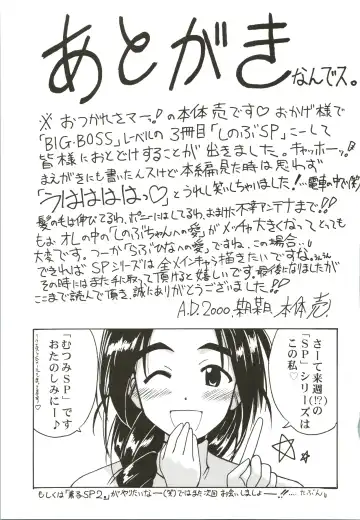 あとがき
なんでス。
※ おつかれさマー。!の本体売です♡ おかげ様で
「BIG・BOSS」レーベルの3冊目「しのぶSP」こーして
皆様におとどけすることが出来ました。キャッホー。!
まえがきにも書いたんスけど本編見た時は思わず
「うはははは。♡」とうれし笑いしちゃいました!…電車の中で(笑)
髪の毛は伸びてるわ、ポニーにはしてるわ、おまけに不幸アンテナまで!!
もぉオレの中の「しのぶちゃんへの愛」がメッチャ大きくなってとっても
大変です。つーか「らぶひなへの愛」ですね、この場合…。
できればSPシリーズは全メインキャラ描きたいですな。うんうん
その時にはまた手に取って頂けると嬉しいです。最後になりましたが
ここまで読んで頂き、誠にありがとうございました!!
A.D.2000. 本体 売
さーて来週(!?)の
「SP」シリーズは
この私♡
「むつみSP」です
おたのしみにー♪
もしくは「素るSP2。」がやりたいなー(笑)ではまた次回お会いしましょー!! ……たぶん。